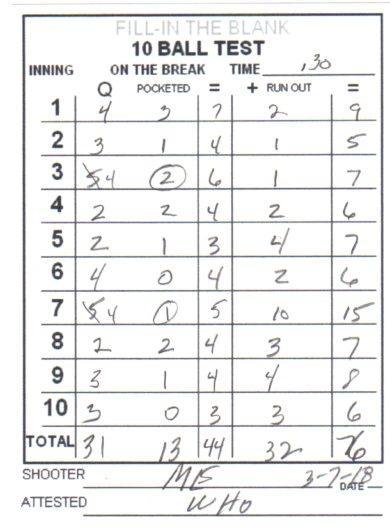 FILL-IN THE BLANK
10 BALL TEST
INNING ON THE BREAK TIME ,30
Q POCKETED = + RUN OUT =
1 4 3 7 2 9
2 3 1 4 1 5
3 5 4 2 6 1 7
4 2 2 4 2 6
5 2 1 3 4 7
6 4 0 4 2 6
7 5 4 1 5 10 15
8 2 2 4 3 7
9 3 1 4 4 8
10 3 0 3 3 6
TOTAL 31 13 44 32 76
SHOOTER 3-7-18
DATE
ATTESTED WHO